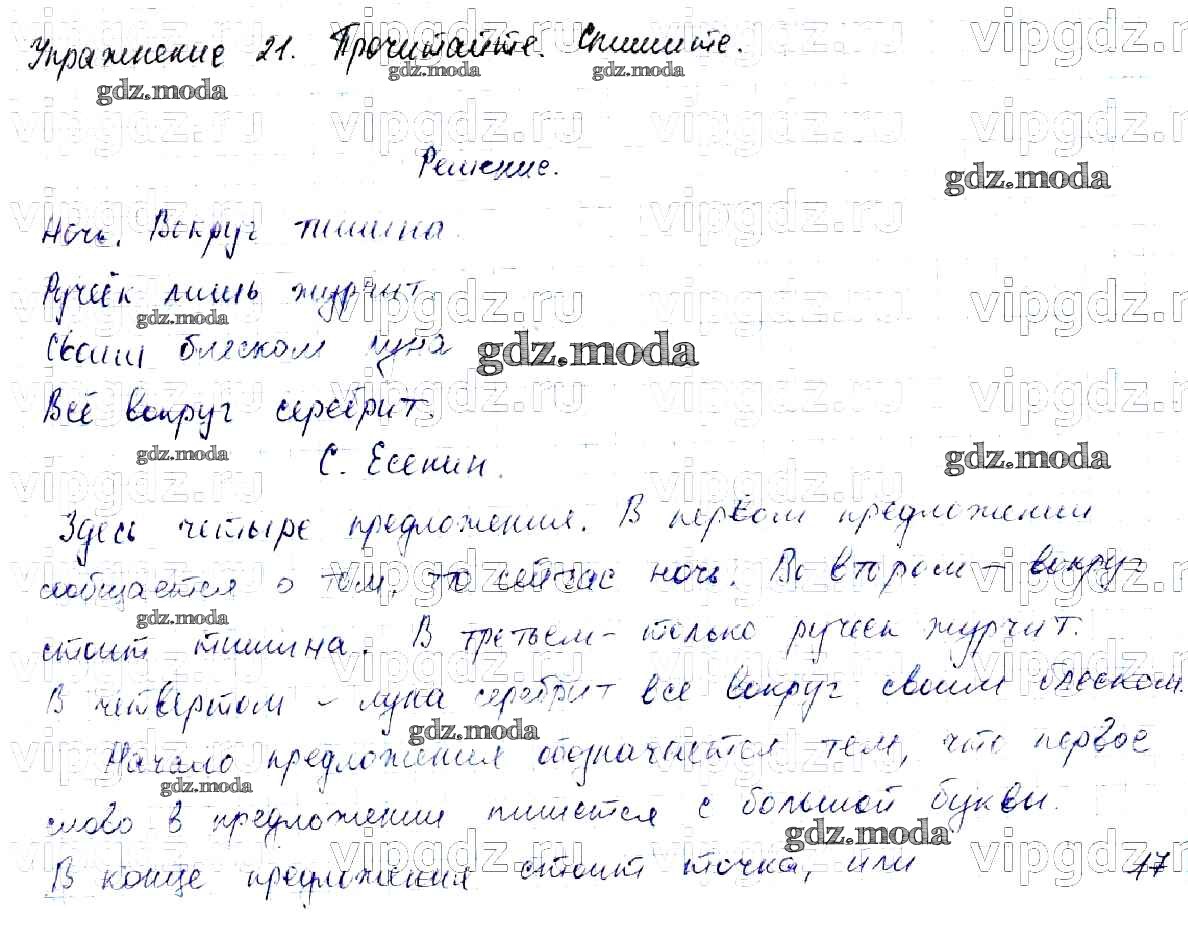 Упражнение 21. Прочитайте. Спишите.
Решение.
Ночь. Вокруг тишина.
Ручеёк лишь журчит.
Своим блеском луна
Всё вокруг серебрит.
С. Есенин.
Здесь четыре предложения. В первом предложении
сообщается о том, что сейчас ночь. Во втором – вокруг
стоит тишина. В третьем – только ручеек журчит.
В четвертом – луна серебрит все вокруг своим блеском.
Начало предложения обозначается тем, что первое
слово в предложении пишется с большой буквы.
В конце предложения стоит точка, или
17